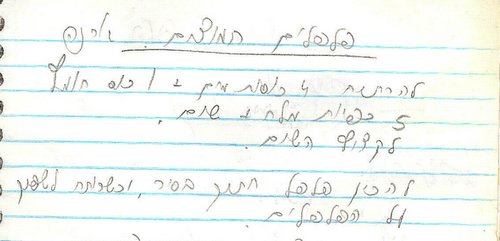 פלפלים חמוצים. אורנה
להרתיח 4 כוסות מים + 1 כוס חומץ
5 כפיות מלח + שום.
לקלוף השום.
להכין פלפל חתוך בסיר, וכשרותח לשפוך
על הפלפלים.